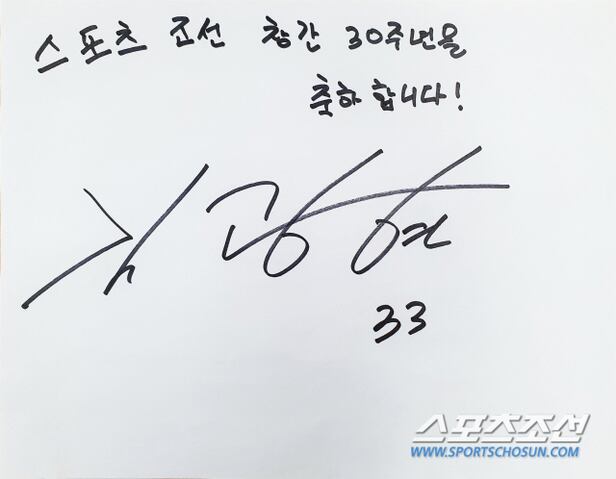 스포츠 조선 창간 30주년을
축하 합니다!
33
스포츠조선
WWW.SPORTSCHOSUN.COM